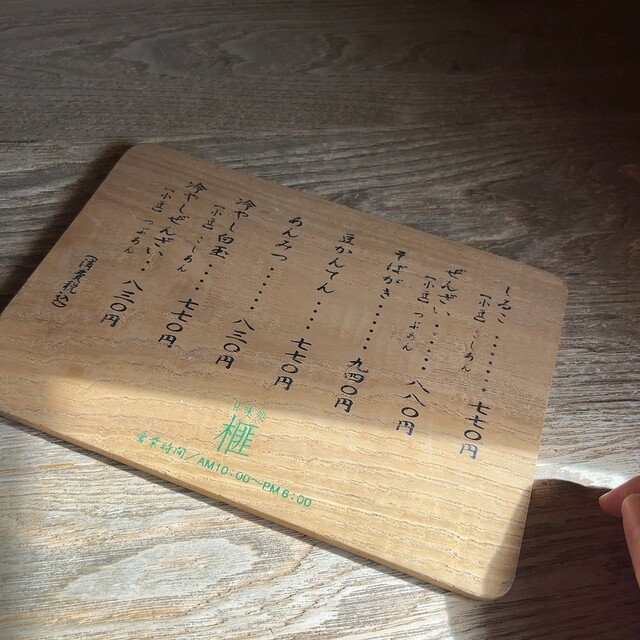 しるこ………七七〇円
〔小豆〕こしあん
ぜんざい……八八〇円
〔小豆〕つぶあん
そばがき………九四〇円
豆かんてん……七七〇円
あんみつ………八三〇円
冷やし白玉……七七〇円
〔小豆〕こしあん
冷やしぜんざい…八三〇円
〔小豆〕つぶあん
(消費税込)
甘味処
榧
営業時間/AM10:00〜PM6:00